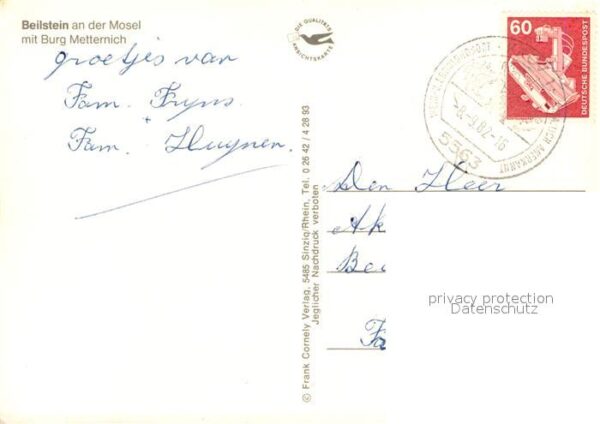 Beilstein an der Mosel
mit Burg Metternich
groetjes van
Fam. Fryns
+
Fam. Huynen.
DIE QUALITÄTS
ANSICHTSKARTE
© Frank Cornely Verlag, 5485 Sinzig/Rhein, Tel. 0 26 42 / 4 28 93
Jeglicher Nachdruck verboten
60
DEUTSCHE BUNDESPOST
-8.-9.82-16
5563
Den Heer
Ak
Be
Fa
privacy protection
Datenschutz